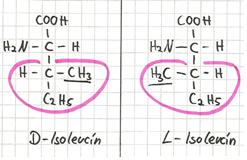 COOH
H₂N - C - H
H - C - CH₃
C₂H₅
D-Isoleucin
COOH
H₂N - C - H
H₃C - C - H
C₂H₅
L-Isoleucin